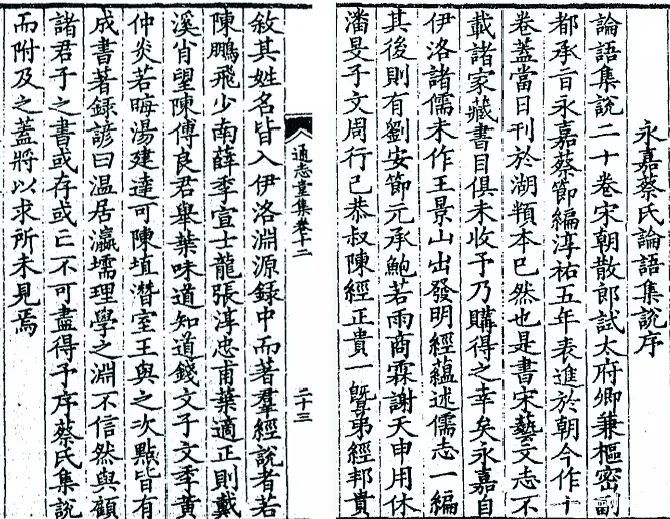 永嘉蔡氏論語集說序
論語集說二十卷宋朝散郎試太府卿兼樞密副
都承旨永嘉蔡節編淳祐五年表進於朝今作十
卷蓋當日刊於湖頖本已然也是書宋藝文志不
載諸家藏書目俱未收予乃購得之幸矣永嘉自
伊洛諸儒未作王景山出發明經蘊述儒志一編
其後則有劉安節元承鮑若雨商霖謝天申用休
潘旻子文周行己恭叔陳經正貴一暨弟經邦貴
通志堂集卷十二
二十三
敘其姓名皆入伊洛淵源錄中而著羣經說者若
陳鵬飛少南薛季宣士龍張淳忠甫葉適正則戴
溪肖望陳傅良君舉葉味道知道錢文子文季黃
仲炎若晦湯建達可陳埴潛室王與之次點皆有
成書著錄諺曰温居瀛壖理學之淵不信然與顧
諸君子之書或存或亡不可盡得予序蔡氏集說
而附及之蓋將以求所未見焉